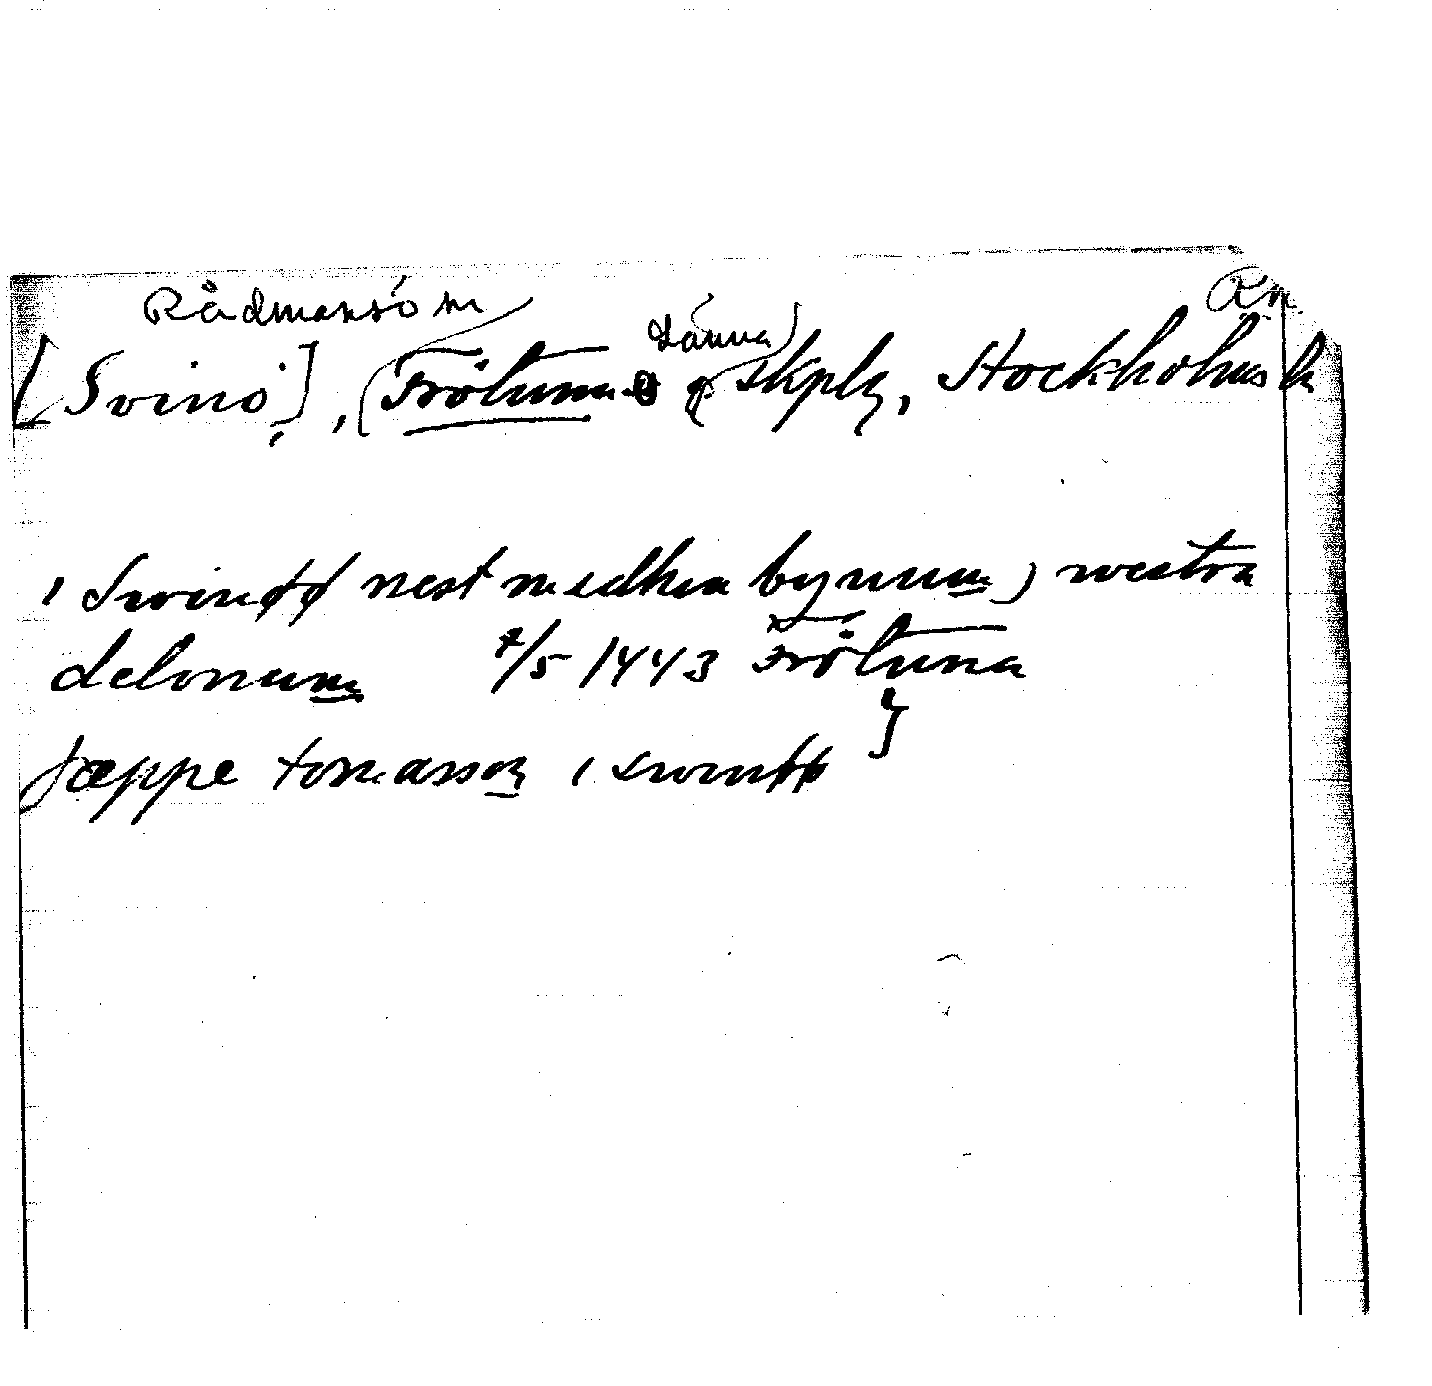 Rådmansö sn Rn
[Svinö], (Frötuna o Länna) skplg, Stockholms l.
i swinøø nest medhra bynum) westra
delonum 7/5 1443 Frötuna
Jæppe tomasson i swinøø }